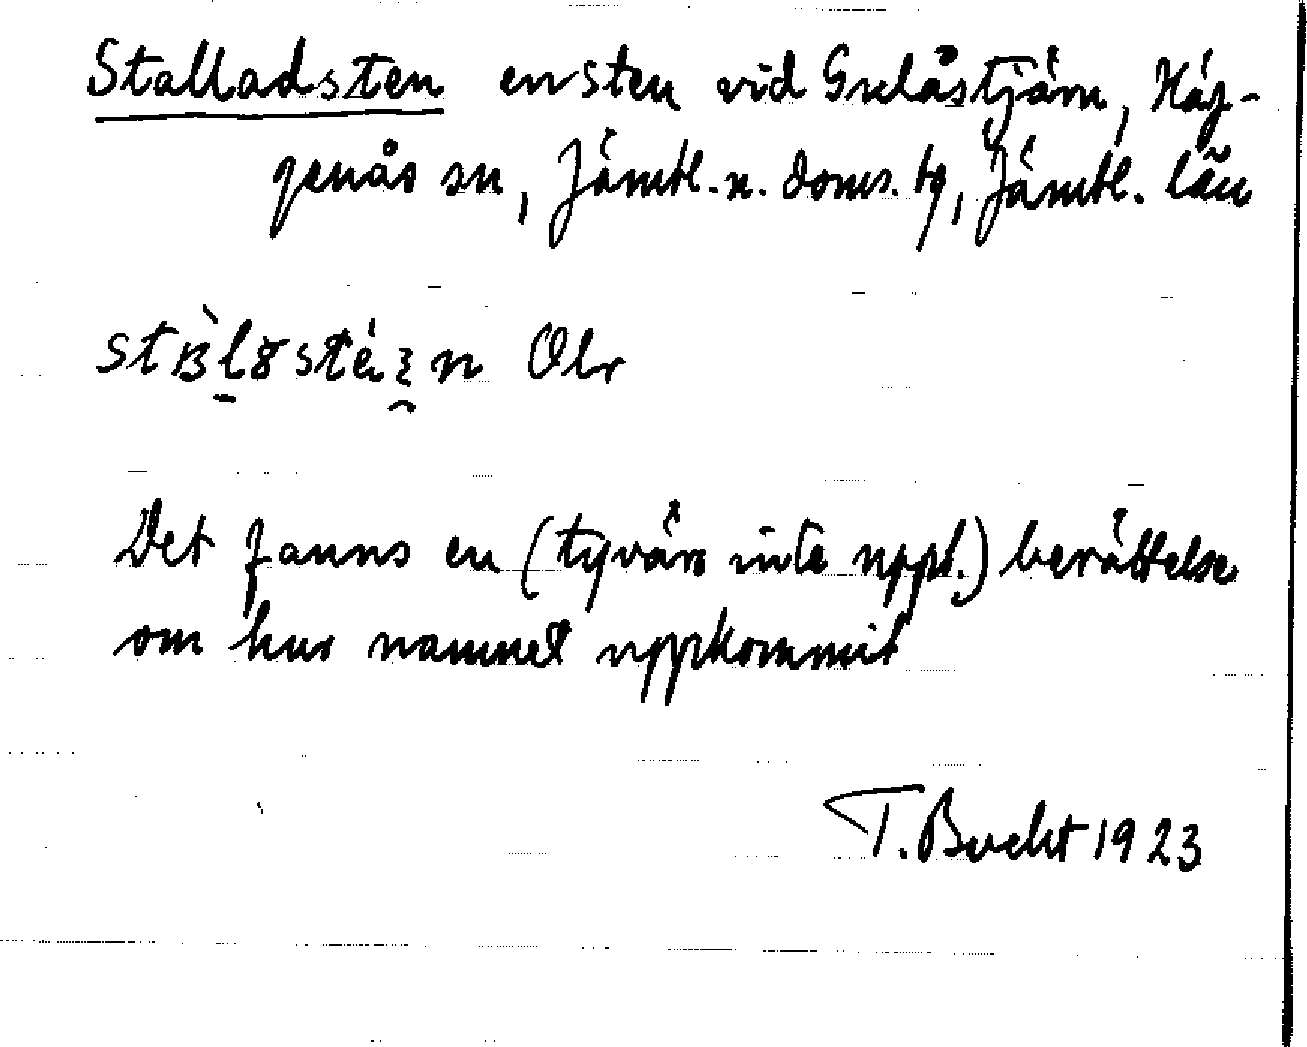 Stalladsten en sten vid Grelåstjärn, Häg-
genås sn, Jämtl. n. doms. tg, Jämtl. län
Olr
Det fanns en (tyvärr inte uppt.) berättelse
om hur namnet uppkommit
T. Bucht 1923